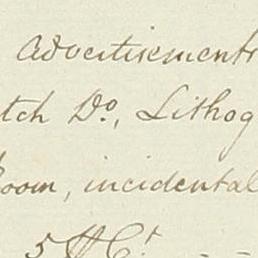 Advertisements
tch Do., Lithog
room, incidental
5 ⅌ Ct. - -